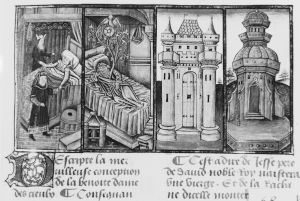 DEscripte la mer
ueilleuse conception
de la benoite dame
des cieulx ¶ Consequan
¶ Cest adire de Jesse pere
de dauid noble roy naistera
vne virge . Et de la raci
ne dicelle monter